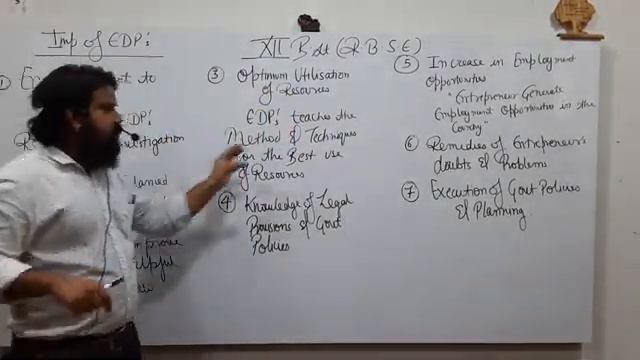 Imp of EDP:
XII B.st (R.B.S.E)
①
to
EDP:
investigation
lanned
improve
③ Optimum Utilisation
of Resources
EDP: teaches the
Method & Techniques
for the Best use
of Resources
④ Knowledge of Legal
Provisions of Govt
Policies
⑤ Increase in Employment
Opportunities
"Entrepreneur Generate
Employment Opportunities in the
Country"
⑥ Remedies of Entrepreneur's
doubts & Problems
⑦ Execution of Govt Policies
& Planning